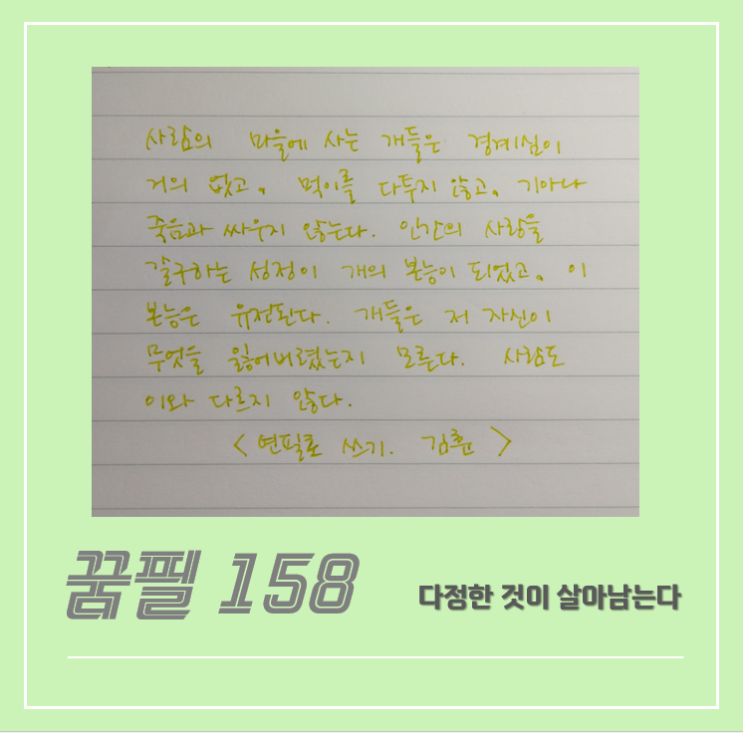 사람의 마을에 사는 개들은 경계심이
거의 없고, 먹이를 다투지 않고, 기아나
죽음과 싸우지 않는다. 인간의 사랑을
갈구하는 성정이 개의 본능이 되었고, 이
본능은 유전된다. 개들은 저 자신이
무엇을 잃어버렸는지 모른다. 사람도
이와 다르지 않다.
< 연필로 쓰기. 김훈 >
꿈필 158
다정한 것이 살아남는다